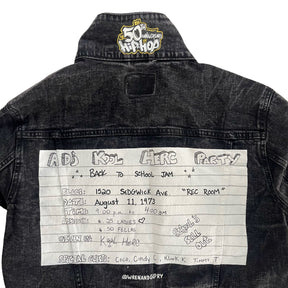 50th
ANNIVERSARY
hiphop
A DJ KOOL HERC PARTY
BACK TO SCHOOL JAM
PLACE: 1520 SEDGWICK AVE "REC ROOM"
DATE: August 11, 1973
TIME: 9:00 p.m. to 4:00 am
$.25 LADIES
$.50 FELLAS
KOOL HERC
SPECIAL GUEST: Coco, Cindy C., Klark K., Timmy T
@WRENANDGLORY